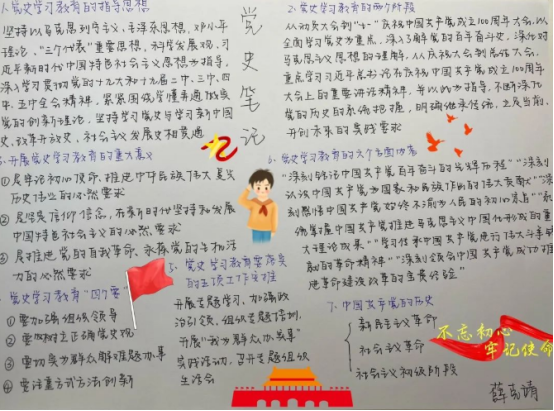 1.党史学习教育的指导思想
坚持以马克思列宁主义、毛泽东思想、邓小平
理论、“三个代表”重要思想、科学发展观、习
近平新时代中国特色社会主义思想为指导,
深入学习贯彻党的十九大和十九届二中、三中、四
中、五中全会精神,紧紧围绕学懂弄通做实
党的创新理论,坚持学习党史与学习新中国
史、改革开放史、社会主义发展史相贯通
党史笔记
2.党史学习教育的两个阶段
从动员大会到“七一”庆祝中国共产党成立100周年大会,以
全面学习党史为重点,深入了解党的百年奋斗史,深化对
马克思主义思想的理解,从庆祝大会到总结大会,
重点学习习近平总书记在庆祝中国共产党成立100周年
大会上的重要讲话精神,并以此为指导,不断深化
党的历史的系统把握,明确继承传统、立足当前、
开创未来的实践要求
3.开展党史学习教育的重大意义
① 是牢记初心使命、推进中华民族伟大复兴
历史伟业的必然要求
② 是坚定信仰信念、在新时代坚持和发展
中国特色社会主义的必然要求
③ 是推进党的自我革命、永葆党的生机活
力的必然要求
党史学习教育“四个要”
① 要加强组织领导
② 要树立正确党史观
③ 要切实为群众办实事解难题
④ 要注重方式方法创新
5.党史学习教育要落实
的五项工作安排
开展专题学习、加强政
治引领、组织专题培训、
开展“我为群众办实事”
实践活动、召开专题组织
生活会
6.党史学习教育的六个方面内容
“深刻铭记中国共产党百年奋斗的光辉历程”“深刻
认识中国共产党为国家和民族作出的伟大贡献”“深
刻感悟中国共产党始终不渝为人民的初心宗旨”“系
统掌握中国共产党推进马克思主义中国化形成的重
大理论成果”“学习传承中国共产党
的革命精神”“深刻领会中国共产党成功推
进革命建设改革的宝贵经验”
7.中国共产党的历史
新民主主义革命
社会主义革命
社会主义初级阶段
不忘初心
牢记使命